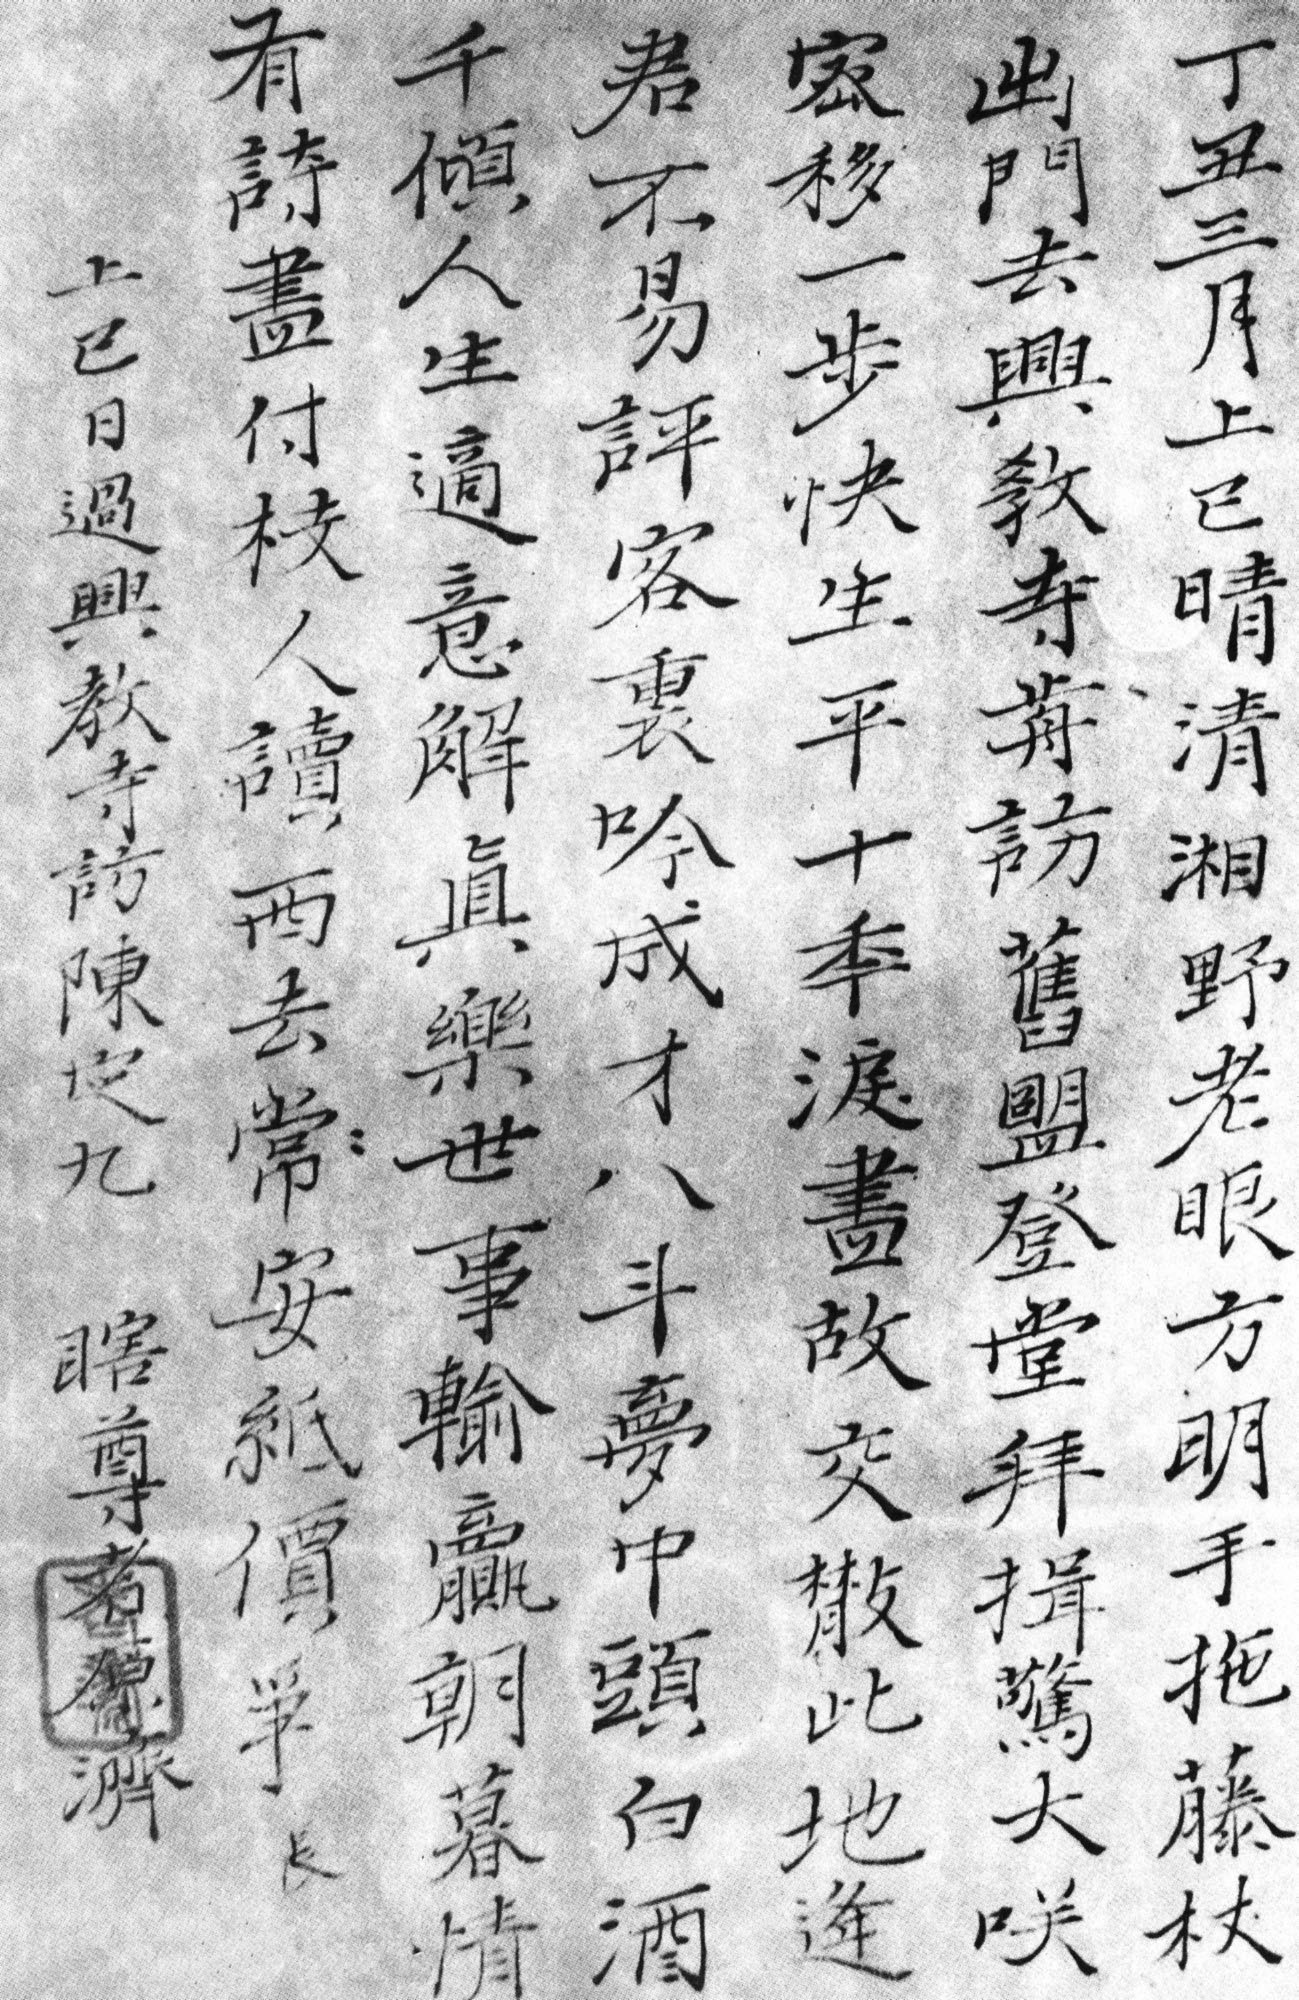 丁丑三月上巳晴清湘野老眼方明手拖藤杖
出門去興教寺葊訪舊盟登堂拜揖驚大咲
密移一步快生平十年淚盡故交散此地逢
君不易評客裏吟成才八斗夢中頭白酒
千傾人生適意解真樂世事輸贏朝暮情
有詩盡付枝人讀西去常安紙價爭
長
上巳日過興教寺訪陳定九 瞎尊者原濟